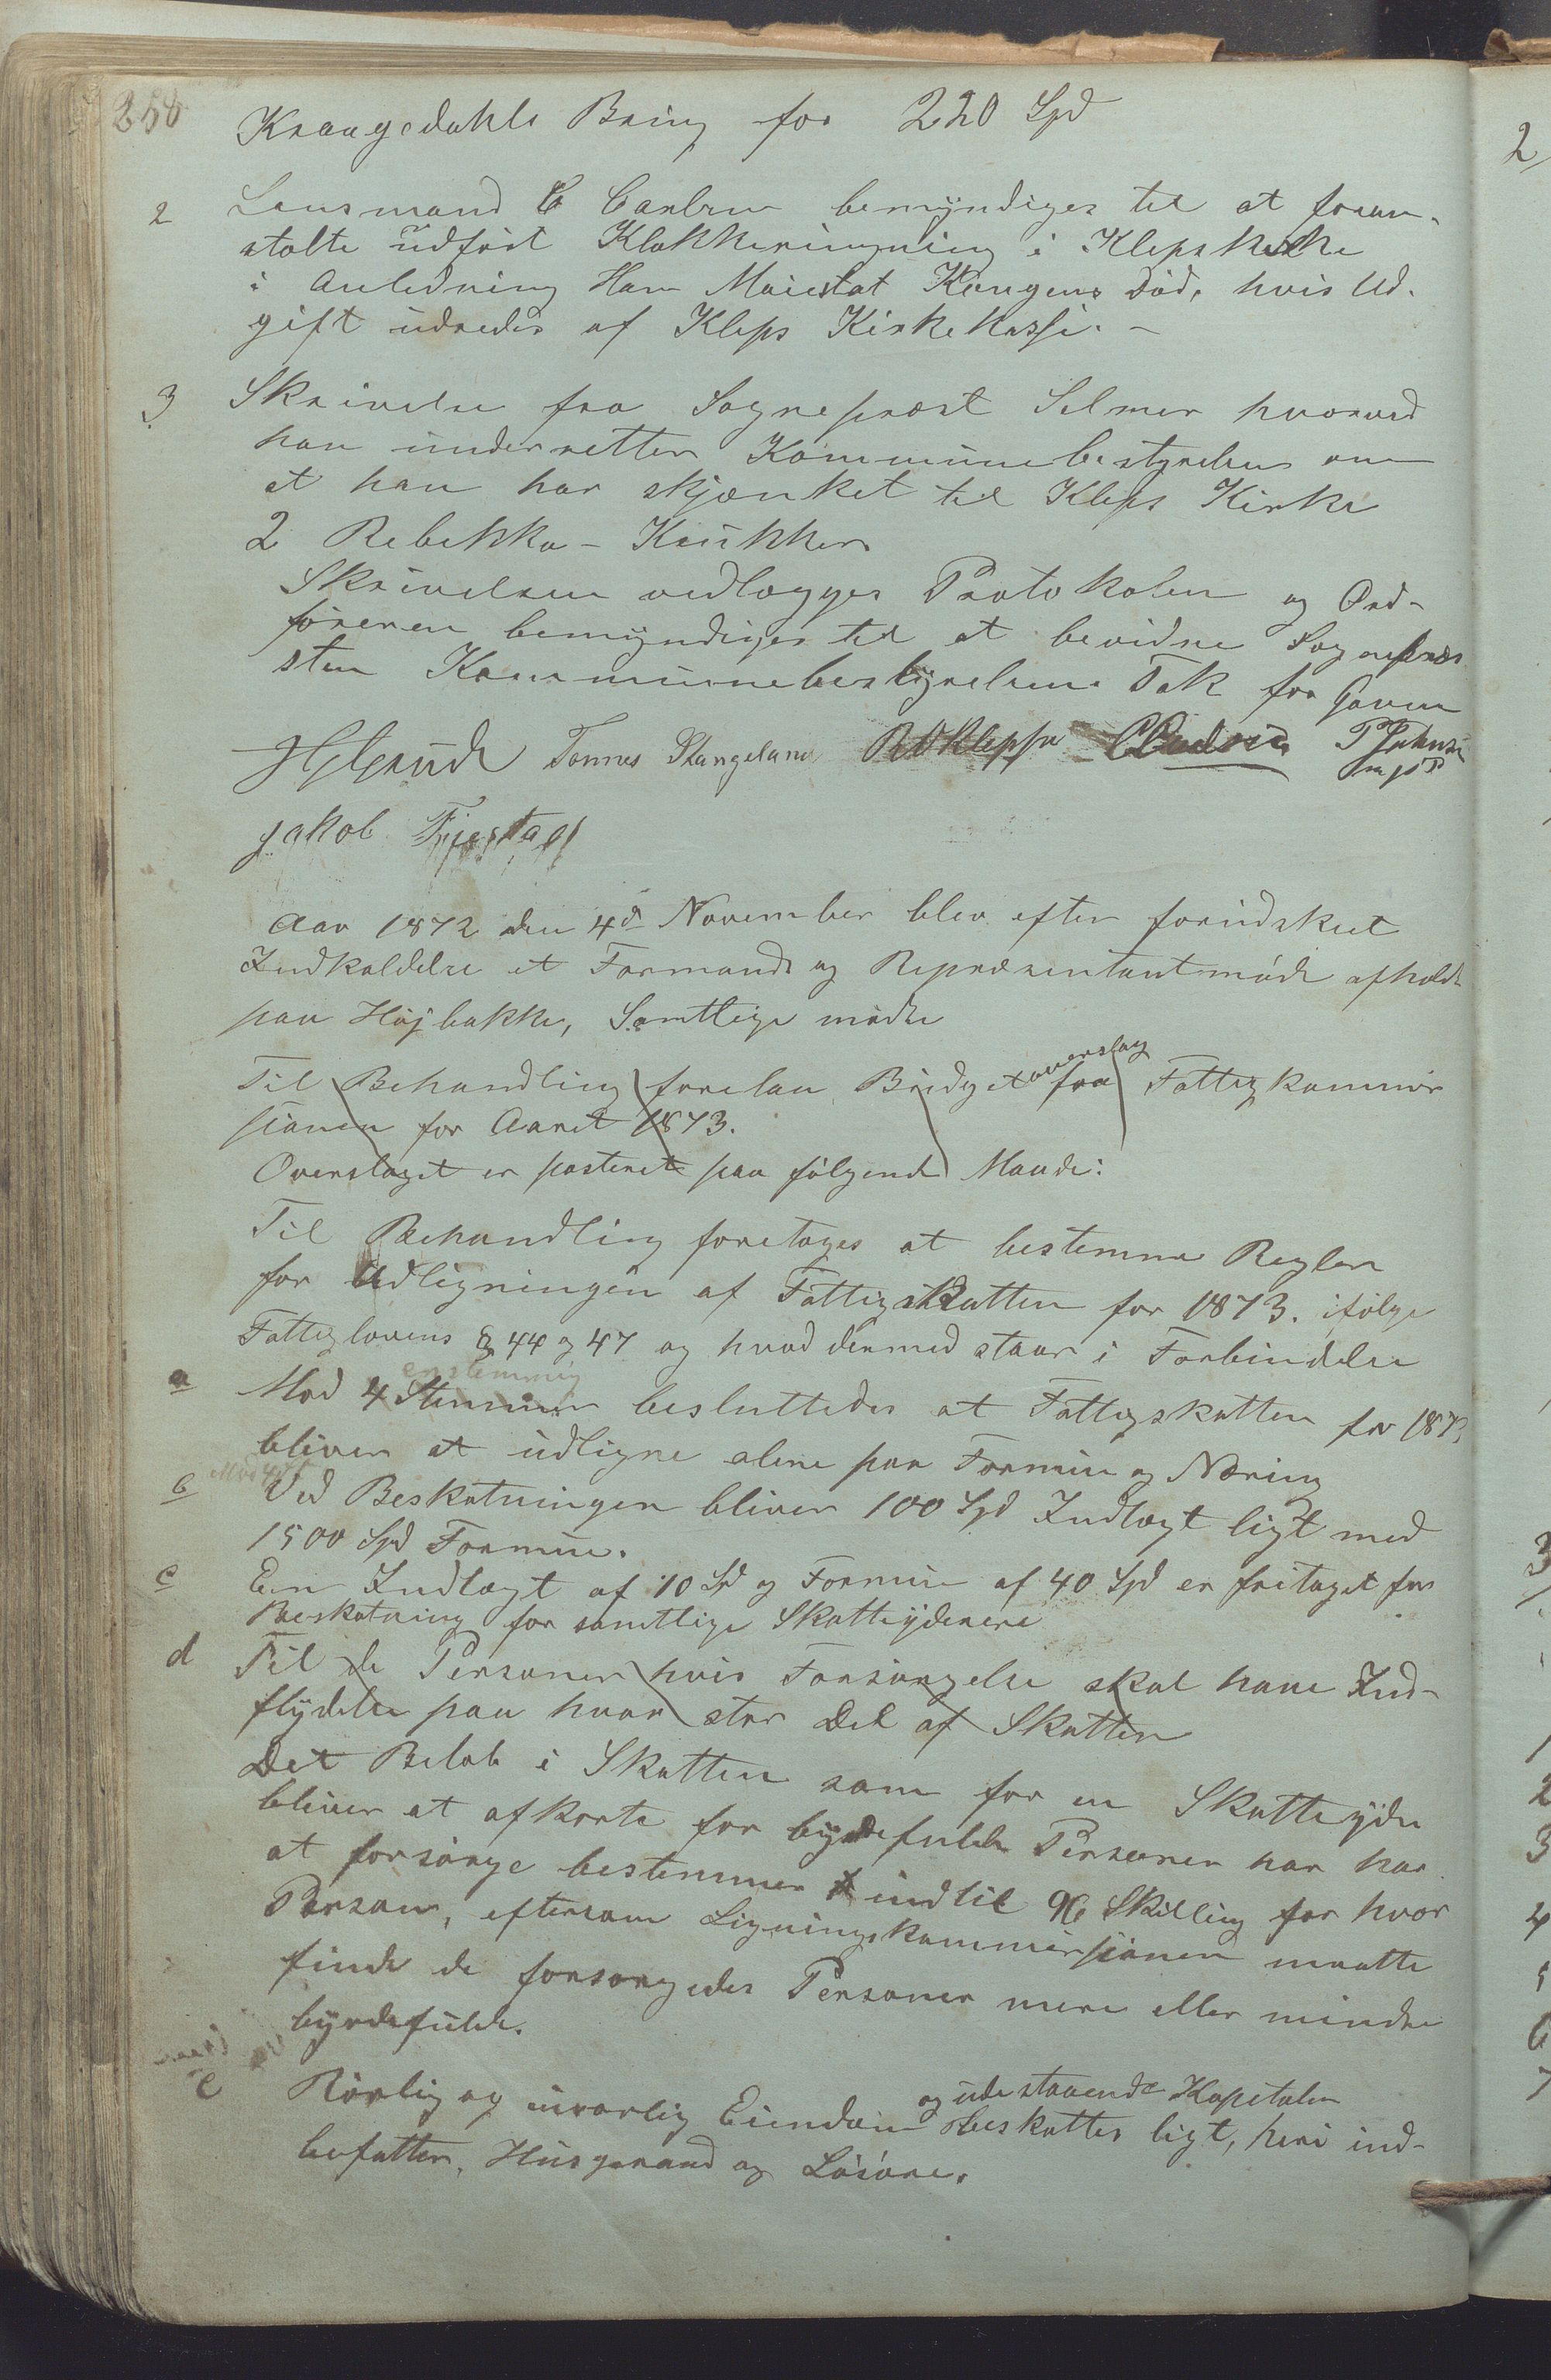 258
Kraagedahls Bring for 220 Spd
2 Lensmand C Carlsen bemyndiges til at foran-
stalte udført Klokkeringning i Klepskirke
i Anledning Hans Maiestat Kongens Død, hvis Ud-
gift udredes af Kleps Kirkekasse. –
3 Skrivelse fra Sognepræst Selmer hvorved
han underretter Kommunebestyrelsen om
at han har skjænket til Kleps Kirke
2 Rebekka-Krukker
Skrivelsen vedlægges Protokolen og Ord-
føreren bemyndiges til at bevidne Sognepræs
sten Kommunebestyrelsens Tak for Gaven
Tønnes Stangeland R O Kleppe
Jakob Tjøstad
Aar 1872 den 4de November blev efter forudskeet
Indkaldelse et Formands og Repræsentantmøde afholdt
paa Højbakke, Samtlige mødte
Til Behandling forelaa Budget overslag fra Fattigkommis
sionen for Aaret 1873.
Overslaget er posteret paa følgende Maade:
Til Behandling foretoges at bestemme Regler
for Udligningen af Fattigskatten for 1873. ifølge
Fattiglovens § 44 og 47 og hvad dermed staar i Forbindelse
enstemmig
a Mod 4 Stemmer besluttedes at Fattigskatten for 1873
bliver at udligne alene paa Formue og Næring
b Ved Beskatningen bliver 100 Spd Indtægt ligt med
1500 Spd Formue.
c Een Indtægt af 10 Spd og Formue af 40 Spd er fritaget for
Beskatning for samtlige Skatteydenere
d Til de Personer hvis Forsørgelse skal have Ind-
flydelse paa hvor stor Del af Skatten
Det Beløb i Skatten som for en Skatteyder
bliver at afkorte for byrdefulde Personer han har
at forsørge bestemmes indtil 96 Skilling for hver
Person, eftersom Ligningskommissionen maatte
finde de forsørgedes Personer mere eller mindre
byrdefulde.
e Rørlig og urørlig Eiendom og udestaaende Kapitaler
beskattes ligt, heri ind-
befatter, Husgeraad og Løsøre.